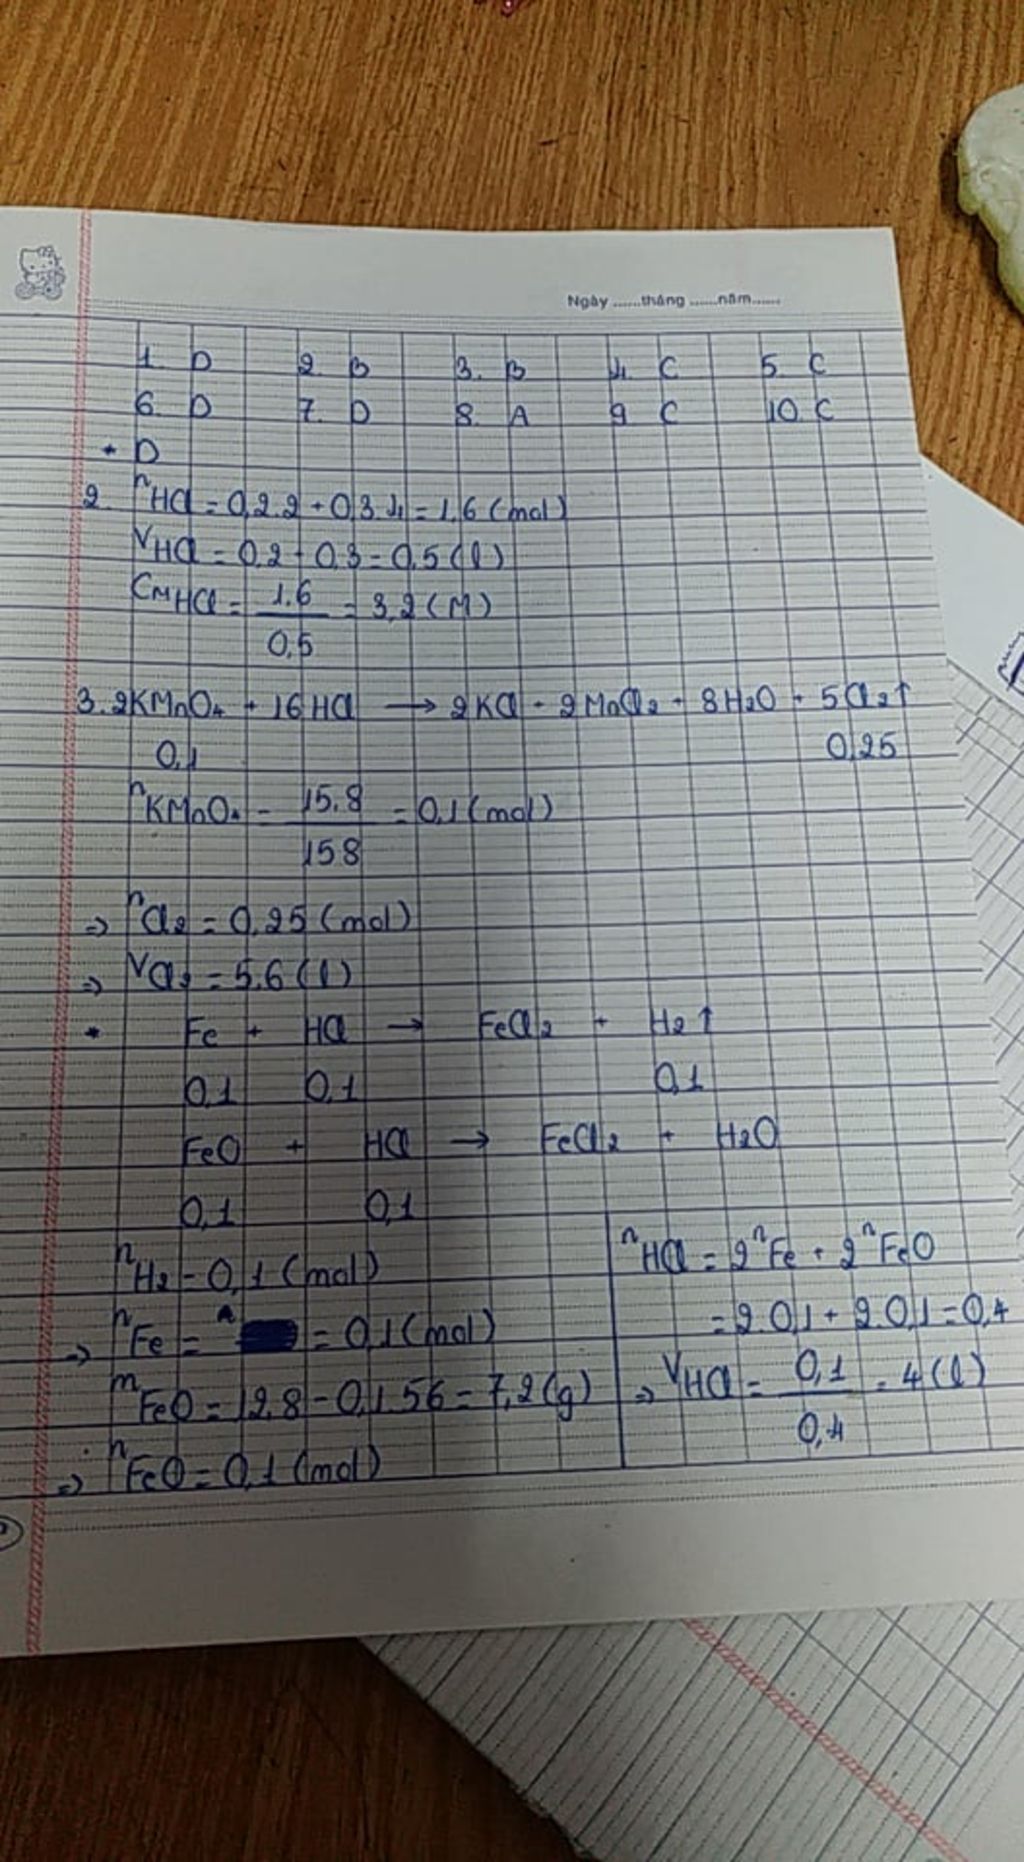 Ngày ......tháng ......năm......
1. D 2. B 3. B 4. C 5. C
6. D 7. D 8. A 9 C 10. C
* D
2. nHCl = 0,2.2 + 0,3.4 = 1,6 (mol)
VHCl = 0,2 + 0,3 = 0,5 (l)
CMHCl = 1.6 / 0,5 = 3,2 (M)
3. 2KMnO4 + 16HCl → 2KCl + 2MnCl2 + 8H2O + 5Cl2↑
0,1 0,25
nKMnO4 = 15,8 / 158 = 0,1 (mol)
=> nCl2 = 0,25 (mol)
=> VCl2 = 5,6 (l)
* Fe + HCl → FeCl2 + H2↑
0,1 0,1 0,1
FeO + HCl → FeCl2 + H2O
0,1 0,1
nH2 = 0,1 (mol)
=> nFe = = 0,1 (mol)
mFeO = 12,8 - 0,1.56 = 7,2 (g)
=> nFeO = 0,1 (mol)
nHCl = 2nFe + 2nFeO
= 2.0,1 + 2.0,1 = 0,4
=> VHCl = 0,1 / 0,4 = 4 (l)